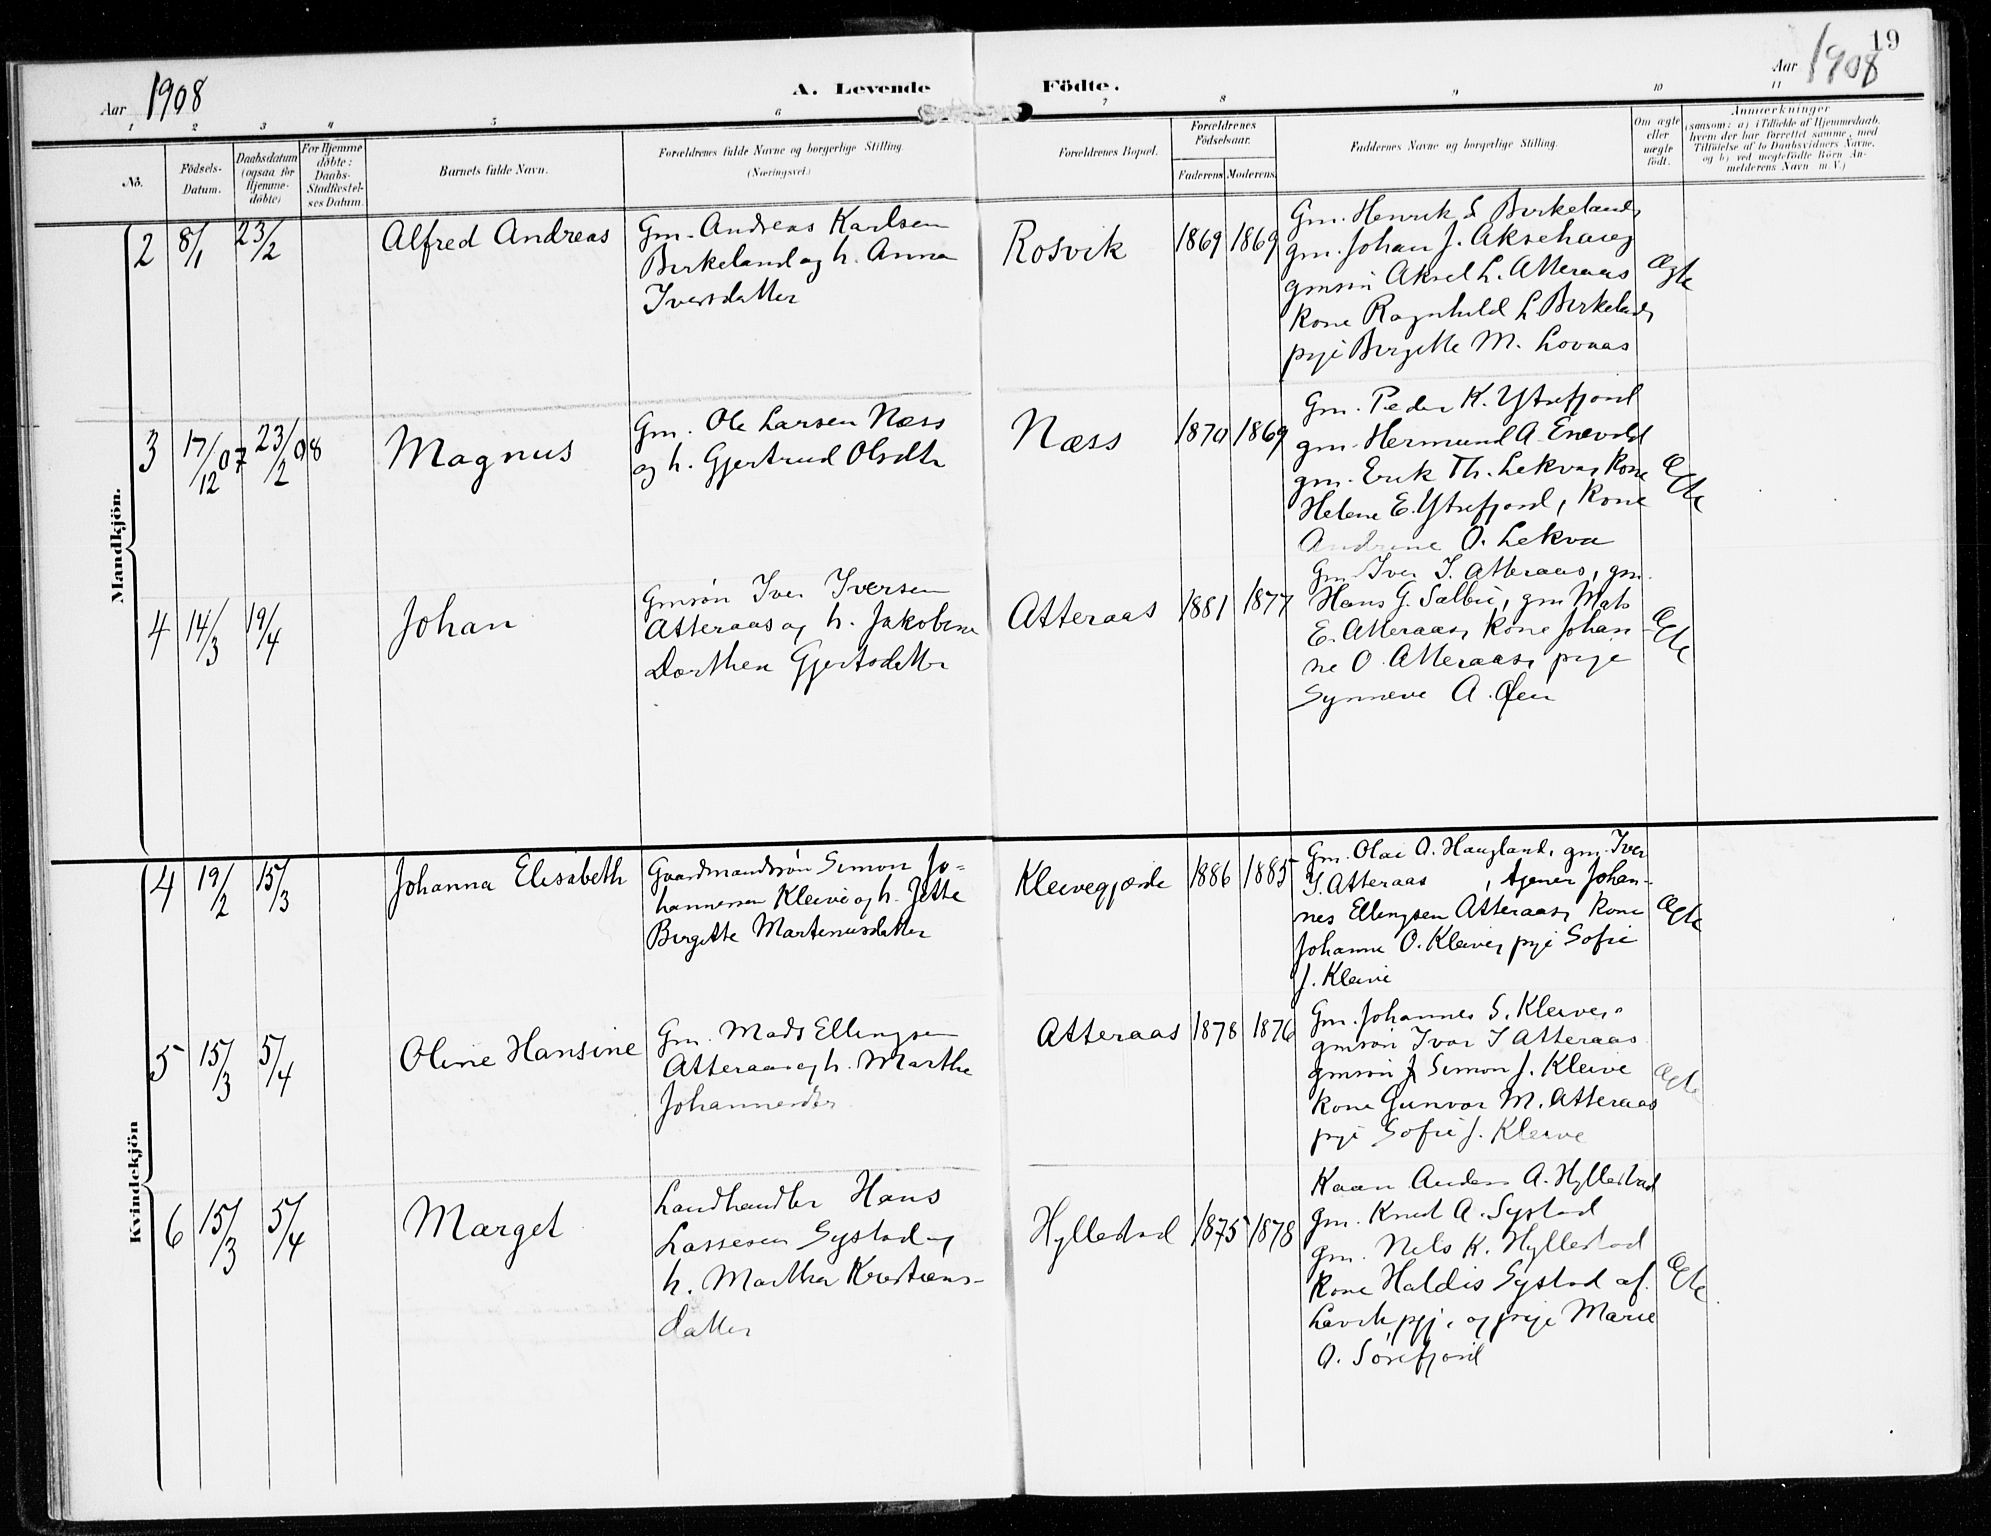 19
Aar 1908
A. Levende Födte.
Aar 1908
1 2 3 4 5 6 7 8 9 10 11
No.
Födsels-Datum.
Daabsdatum (ogsaa for Hjemme-döbte)
For Hjemme döbte: Daabs-Stadfæstel-ses Datum.
Barnets fulde Navn.
Forældrenes fulde Navne og borgerlige Stilling.
(Næringsvei.)
Forældrenes Bopæl.
Forældrenes Födselsaar.
Faderens. Moderens.
Faddernes Navne og borgerlige Stilling.
Om ægte eller uægte födt.
Anmærkninger
(saasom: a) i Tilfælde af Hjemmedaab, hvem der har forrettet samme, med Tilföielse af to Daabsvidners Navne, og b) ved uægtefödte Börn An-melderens Navn m. V.)
Mandkjön.
2 8/1 23/2 Alfred Andreas
Gm. Andreas Karlsen
Birkeland og h. Anna
Iversdatter
Rosvik 1869 1869
Gm. Henrik L Birkeland,
gm. Johan J. Aksehaug
gmsön Aksel L. Atteraas
kone Ragnhild L Birkeland,
pige Bergitte M. Lovaas
ægte
3 17/12 07 23/2 08 Magnus
Gm. Ole Larsen Næss
og h. Gjertrud Olsdtr
Næss 1870 1869
Gm. Peder K. Ytrefjord
gm. Hermund A. Enevold
gm. Erik Th. Lekva, kone
Helene E. Ytrefjord, kone
Andrine O. Lekva
ægte
4 14/3 19/4 Johan
Gmsøn Iver Iversen
Atteraas og h. Jakobine
Dorthea Gjertsdatter
Atteraas 1881 1877
Gm Iver I. Atteraas, gm.
Hans G. Salbu, gm Mats
E. Atteraas, kone Johan-
ne O. Atteraas, pige
Synneve A. Øen
ægte
Kvindekjön
4 19/2 15/3 Johanna Elisabeth
Gaardmandssøn Simon Jo-
hannessen Kleive og h. Jette
Birgitte Martinusdatter
Kleivegjærde 1886 1885
Gm. Olai A. Haugland, gm. Iver
I. Atteraas, tjener Johan-
nes Ellingsen Atteraas, kone
Johanne O. Kleive, pige Sofie
J. Kleive
ægte
5 15/3 5/4 Oline Hansine
Gm. Mads Ellingsen
Atteraas og h. Marthe
Johannesdtr
Atteraas 1878 1876
Gm. Johannes S. Kleive,
gmsøn Ivar I Atteraas
gmsøn Simon J. Kleive
kone Gunvor M. Atteraas
pige Sofie J. Kleive
ægte
6 15/3 5/4 Marget
Landhandler Hans
Lassesen Systad og
h. Martha Kristians-
datter
Hyllestad 1875 1878
Kaan Anders A. Hyllestad
gm. Knut A. Systad
gm. Nels K. Hyllestad
kone Haldis Systad af
Lavik pgj. og pige Marie
O. Sörefjord
ægte